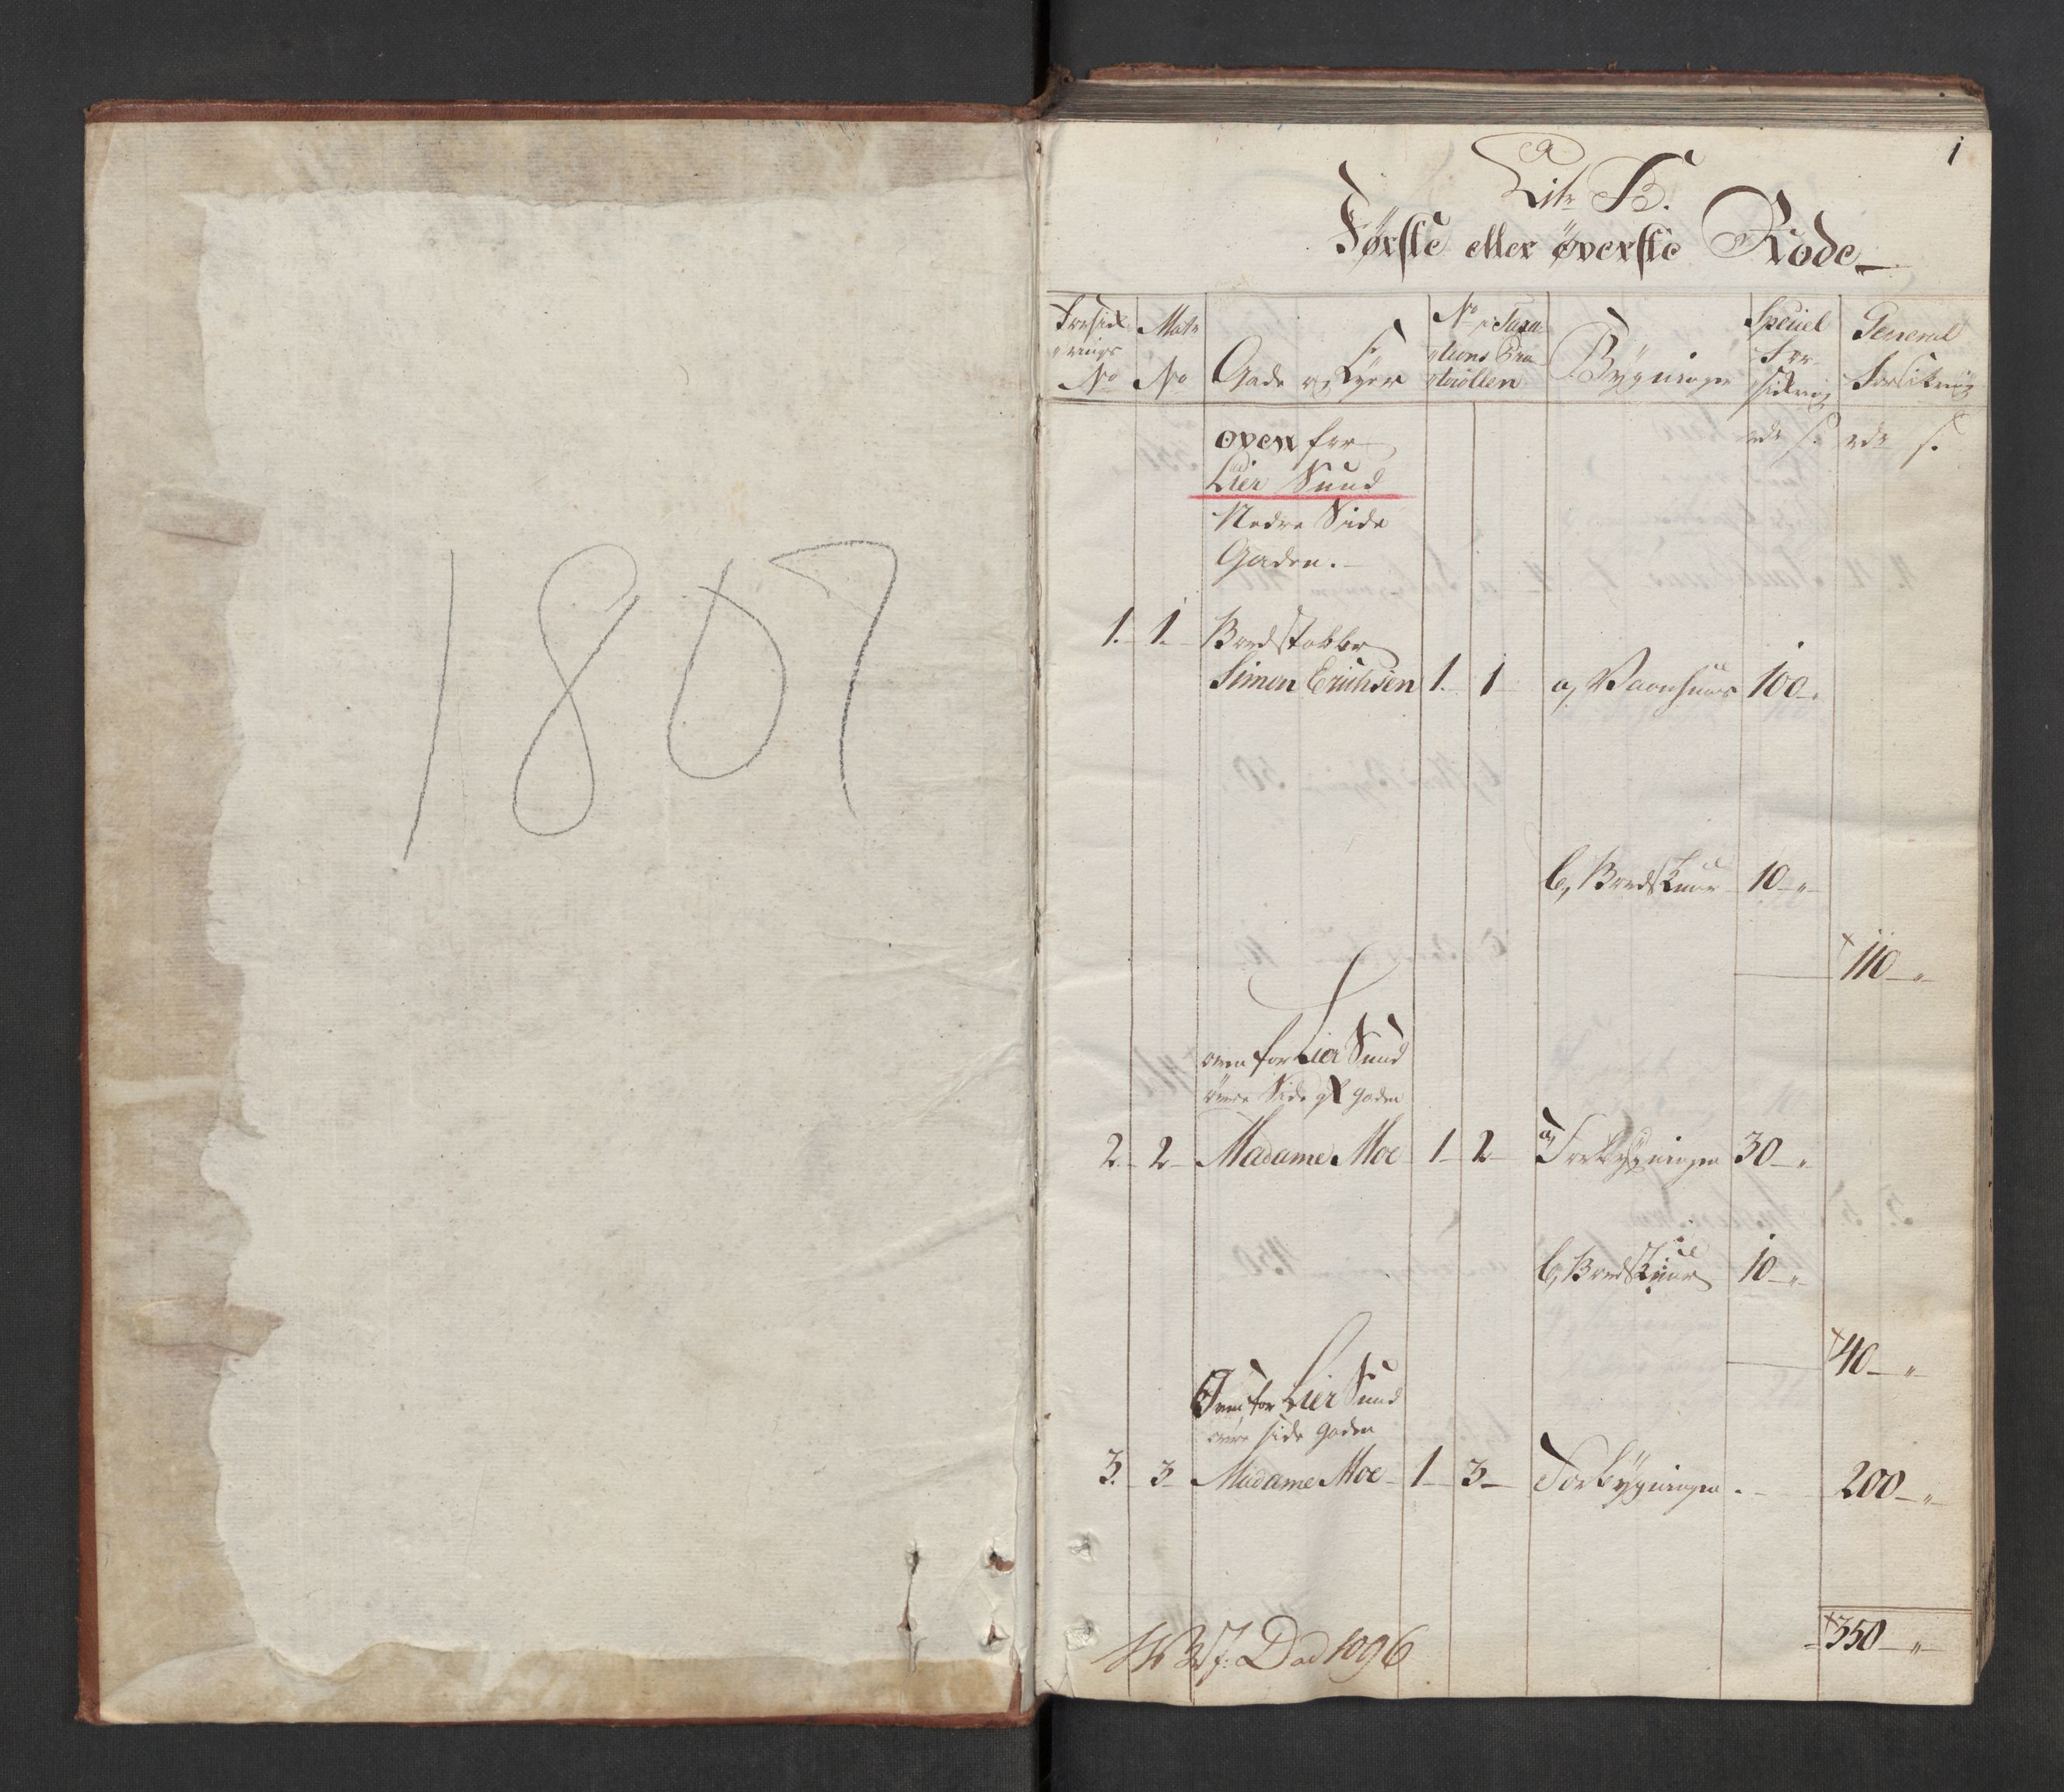 1807
1
Litr B.
Første eller øverste Rode
Forsikringens No
Matr No
Gade og Eyer
No i Taxationsprotocollen
Bygninger
Speciel Forsikring
General Forsikring
rdr s. rdr s.
oven for
Lier Sund
Nedre Side
Gaden.
1. 1. Bordstabler
Simon Erichsen 1. 1 a, Vaanhuus 100
b, Bordskuur 10
110
oven for Lier Sund
övre Side Gaden
2. 2 Madame Moe 1 2 a, Forbygningen 30
b, Bordskuur 10
40
Oven for Lier Sund
övre side gaden
3. 3 Madame Moe 1 3 Forbygningen 200
350